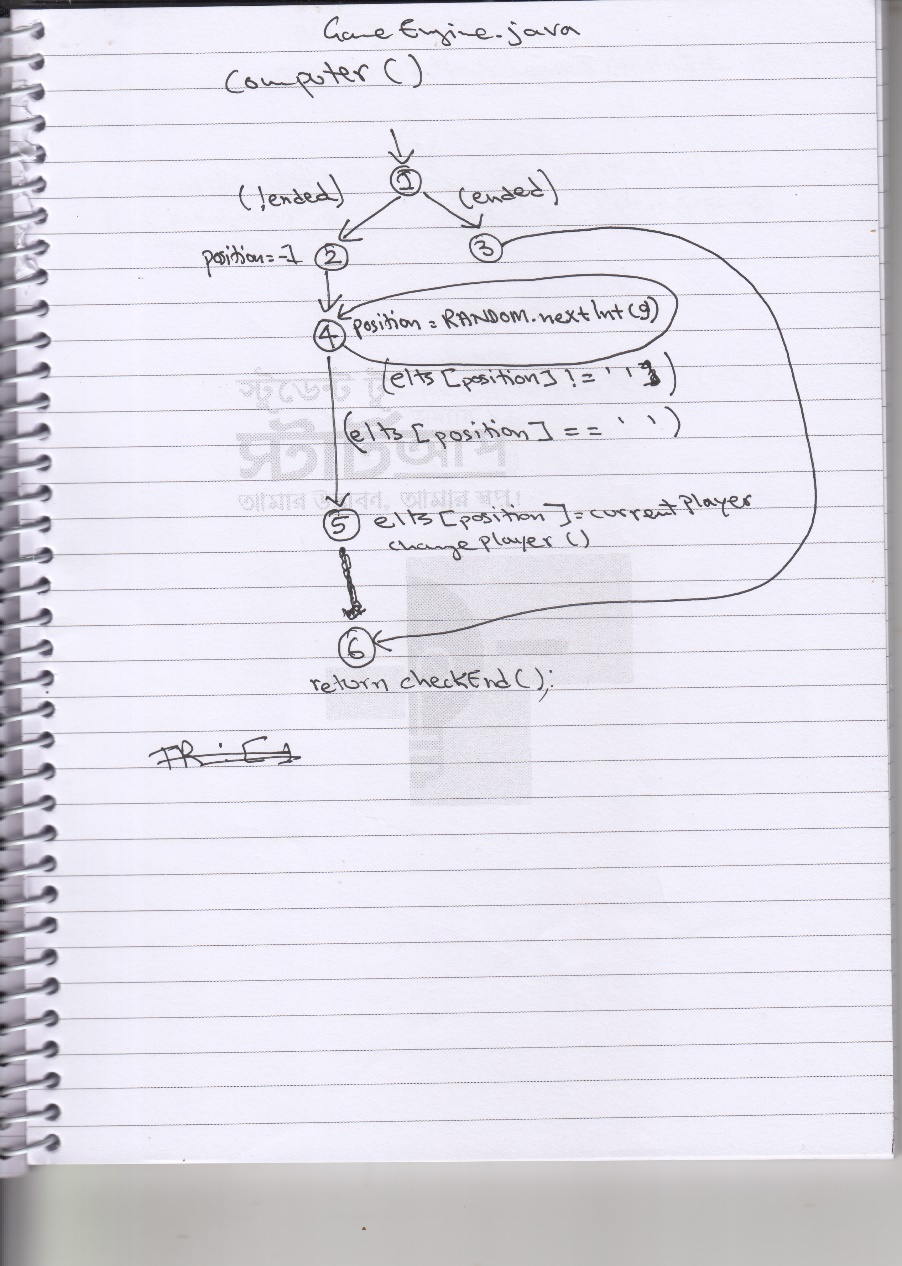 Game Engine.java
Computer ()
1
(!ended)
(ended)
position=-1
2
3
4
position = RANDOM.nextInt(9)
(elts [position] != ' ')
স্টুডেন্ট টু
(elts [position] == ' ')
স্টার্টআপ
আমার উদ্ভাবন, আমার স্বপ্ন!
5
elts [position] = currentPlayer
changeplayer ()
6
return checkEnd();